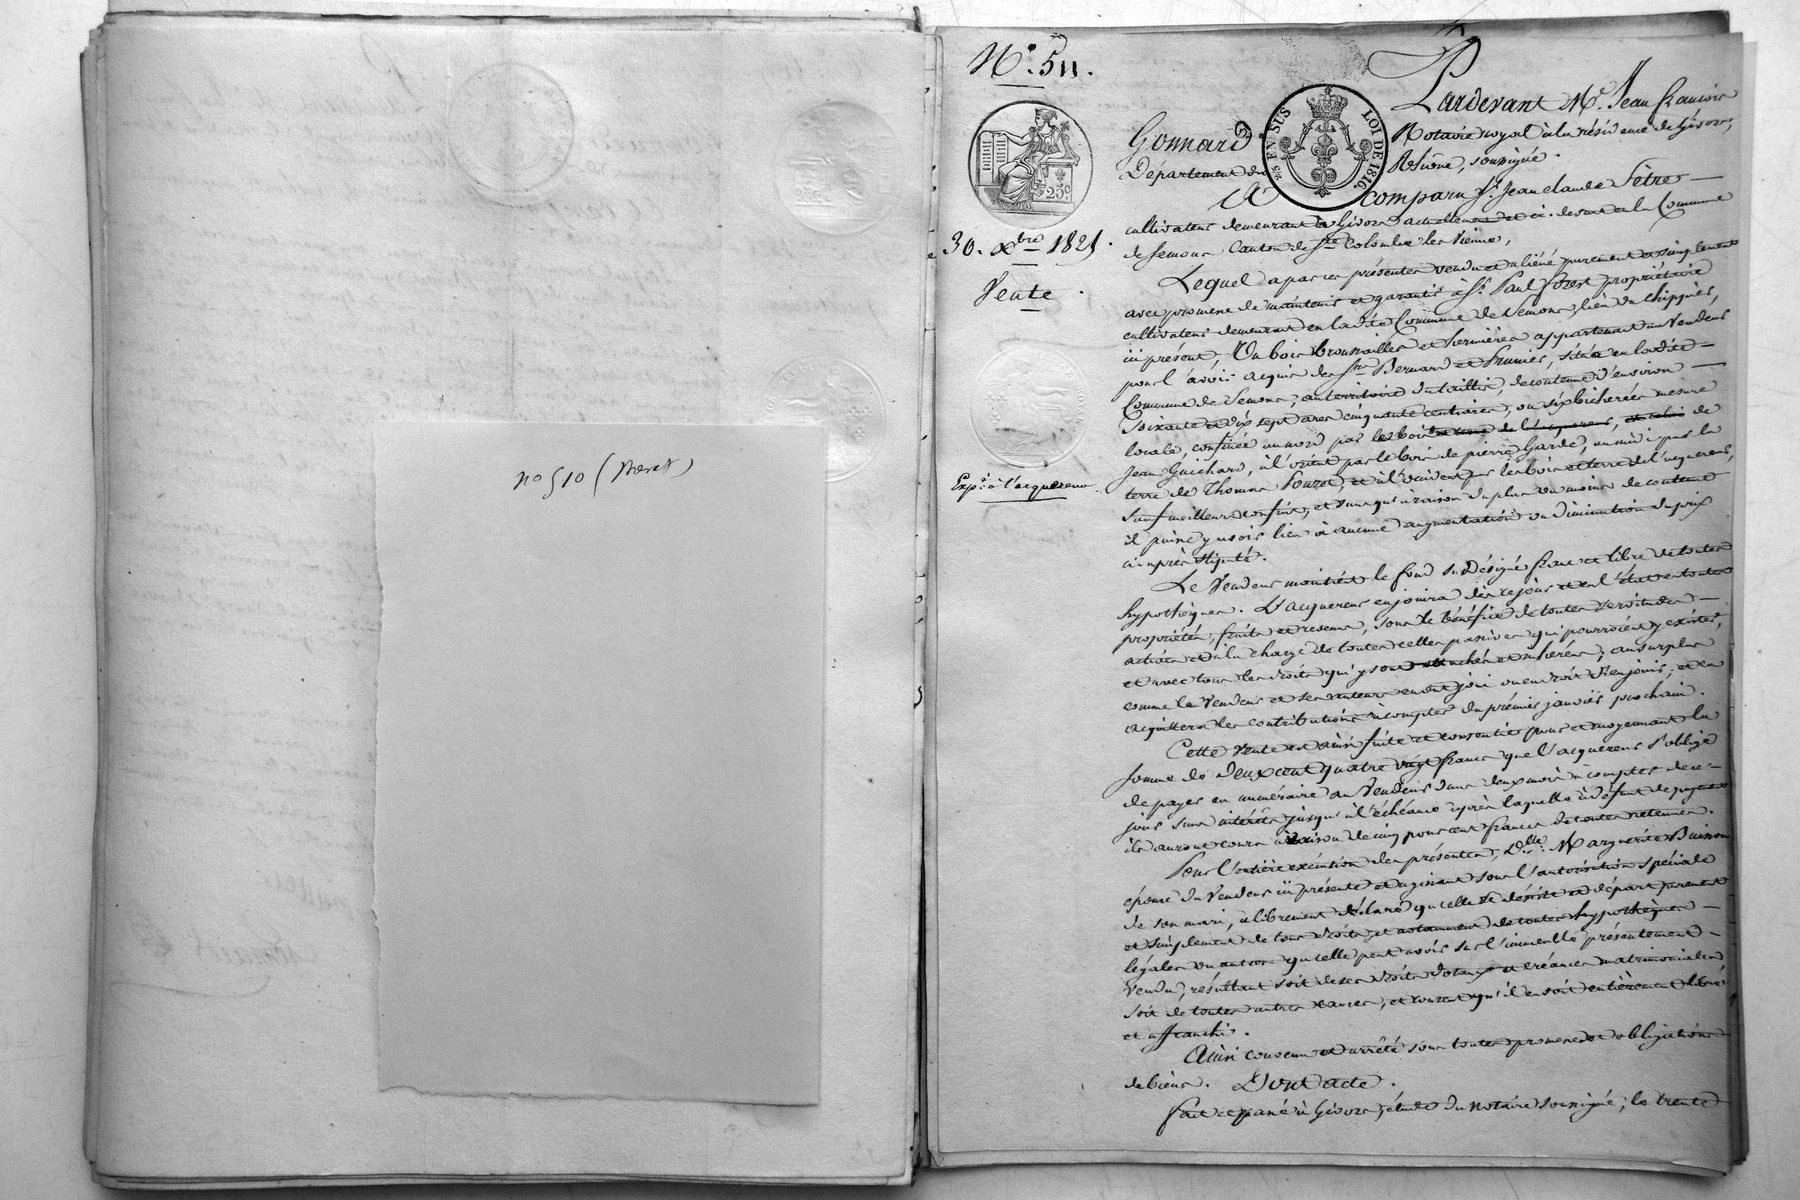 n° 510 (brevet)
N°. 511.
Pardevant Me. Jean françois
Gonnard Notaire royal à la résidence de Givors,
Département du Rhône, soussigné.
A comparu Sr. Jean claude Fêtre
cultivateur demeurant à Givors actuellement et ci-devant en la Commune
de Semons Canton de Ste Colombe les vienne,
EN SUS
LOI DE 1816.
25c
30. Xbre 1821.
Vente.
Exp.on à l'acquereur
Lequel a par ces présentes vendu et aliéné purement et simplement
avec promesse de maintenir et garantir à Sr. Paul propriétaire
cultivateur demeurant en la dite Commune de Semons, lieu du
ici présent, Un bois broussailles et hermières appartenant au Vendeur
pour l'avoir acquis des Srs Bernard et située en la dite
Commune de Semons, au territoire du taillis, de contenue d'environ
Soixante et dix sept ares cinquante centiares, ou six bicherées mesure
locale, confinée au nord par le bois de
Jean Guichard, à l'orient par le bois de pierre Garde, au midi par la
terre de Thomas et à l'occident par les bois et terre de l'acquereur,
sauf meilleurs confins, et sans qu'à raison du plus ou moins de contenue
il puisse y avoir lieu à aucune augmentation ou diminution du prix
ci-après stipulé.
Le Vendeur maintient le fond sus désigné franc et libre de toutes
hypothèques. L'acquereur en jouira dès ce jour et en l'état en toutes
propriétés, fruits et revenus, sous le bénéfice de toutes servitudes
actives et à la charge de toutes celles passives qui pourroient y exister,
et avec tous les droits qui y sont attachés et inhérens, au surplus
comme le Vendeur et ses auteurs en ont joui ou eu droit d'en jouir, et en
acquittera les contributions à compter du prémier janvier prochain.
Cette Vente est ainsi faite et consentie pour et moyennant la
somme de Deux cent quatre vingt francs que l'acquereur s'oblige
de payer en numéraire au Vendeur dans deux mois à compter de ce
jour sans intérêts jusqu'à l'échéance après laquelle à défaut de payement
ils auront cours à raison de cinq pour cent francs de toutes retenues.
Pour l'entière exécution des présentes, Dlle. Marguerite Buisson
épouse du Vendeur ici présente et agissant sous l'autorisation spéciale
de son mari, a librement déclaré qu'elle se désiste et départ purement
et simplement de tous droits, et notamment de toutes hypothèques
légales ou autres qu'elle peut avoir sur l'immeuble présentement
vendu, résultant soit de ses droits dotaux et créances matrimoniales
soit de toutes autres causes, et consent qu'il en soit entièrement libéré
et affranchi.
Ainsi convenu et arrêté sous toutes promesses et obligations
de biens. Dont acte.
fait et passé à Givors, étude du notaire soussigné, le trente